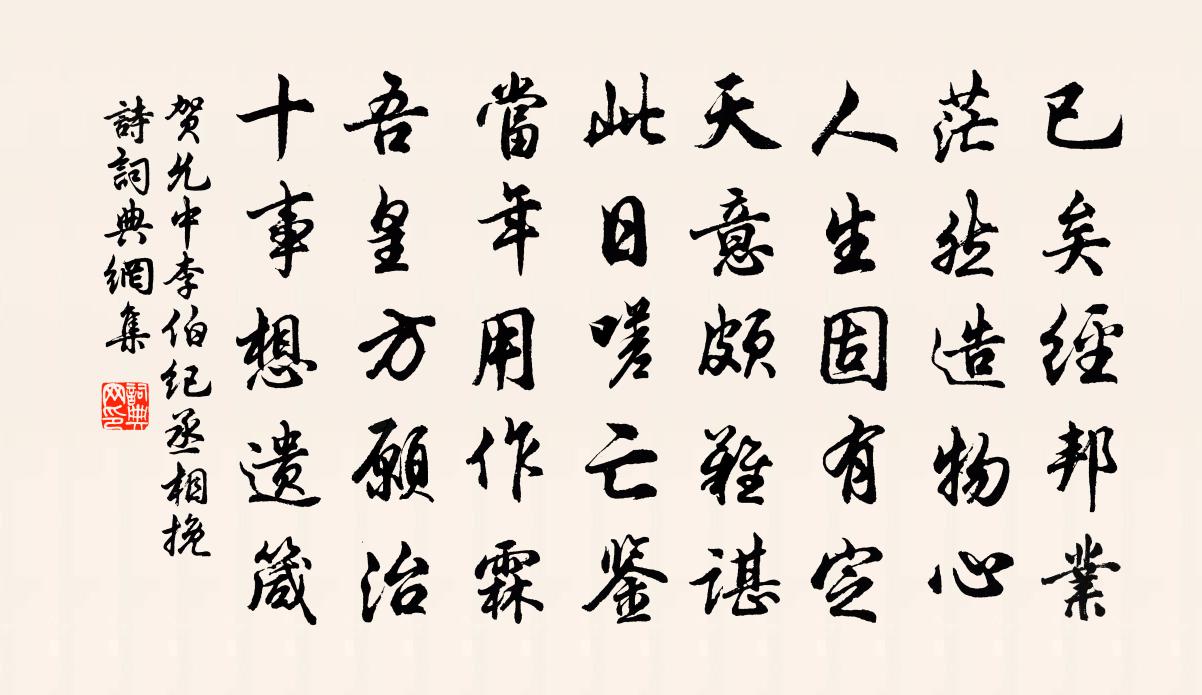 已矣經邦業
茫然造物心
人生固有定
天意頗難諶
此日嗟亡鉴
當年用作霖
吾皇方願治
十事想遗箴
贺允中李伯纪丞相挽
詩詞典網集
詞典网印